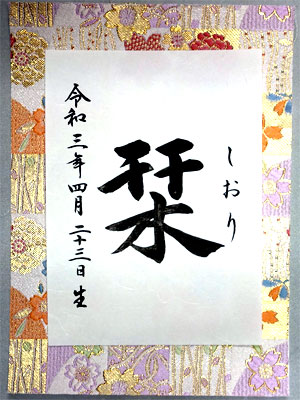 しおり
栞
令和三年四月二十三日生